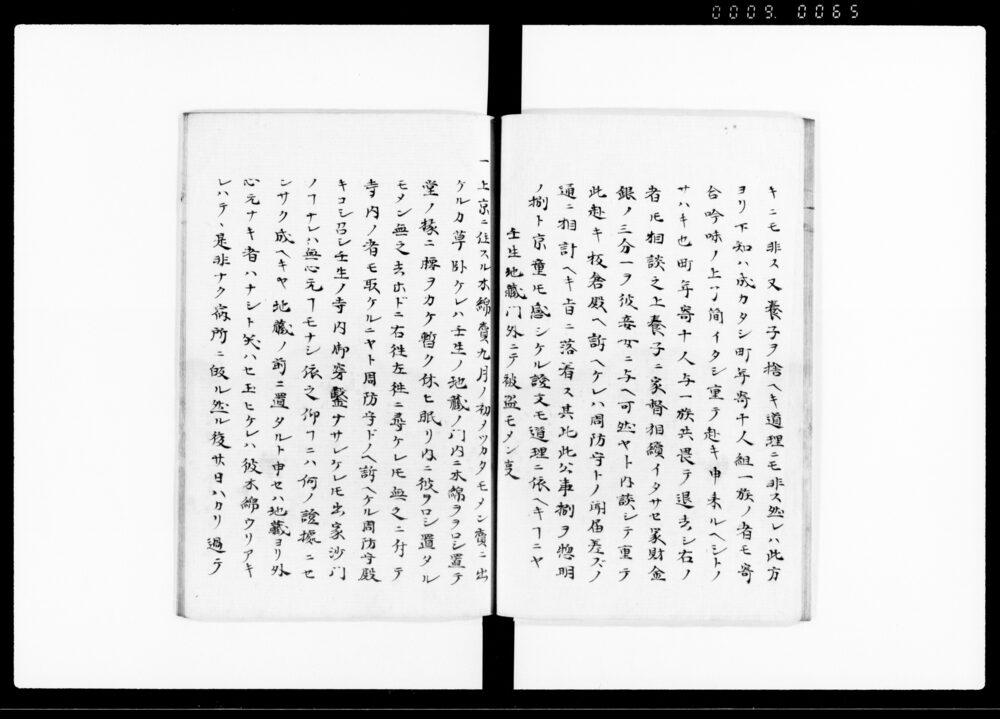 0009 0065
キニモ非ス又養子ヲ捨ヘキ道理ニモ非ス然レハ此方
ヨリ下知ハ成カタシ町年寄十人組一族ノ者モ寄
合吟味ノ上了簡イタシ重テ赴キ申来ルヘシトノ
サハキ也町年寄十人与一族共畏テ退去シ右ノ
者モ相談之上養子ニ家督相續イタサセ家財金
銀ノ三分一ヲ彼妾女ニ与ヘ可然ヤト内談シテ重テ
此赴キ板倉殿ヘ訴ヘケレハ周防守トノ聞届差ズノ
通ニ相計ヘキ旨ニ落着ス其比此公事捌ヲ惣明
ノ捌ト京童モ感シケル證文モ道理ニ依ヘキヿニヤ
壬生地藏門外ニテ被盗モメン㕝
一上京ニ住スル木綿賣九月ノ初メツカタモメン賣ニ出
ケルカ草臥ケレハ壬生ノ地藏ノ門内ニ木綿ヲヲロシ置テ
堂ノ椽ニ腰ヲカケ暫ク休ヒ眠リ内ニ彼ヲロシ置タル
モメン無之去ホドニ右徃左徃ニ尋ケレモ無之ニ付テ
寺内ノ者モ取ケルニヤト周防守ドノヘ訴ヘケル周防守殿
キコシ召シ壬生ノ寺内御穿鑿ナサレケレモ出家沙門
ノヿナレハ無心元ヿモナシ依之仰ヿニハ何ノ證據ニセ
ンサク成ヘキヤ地藏ノ前ニ置タルト申セハ地藏ヨリ外
心元ナキ者ハナシト笑ハセ玉ヒケレハ彼木綿ウリアキ
レハテ、是非ナク宿所ニ皈ル然ル後廿日ハカリ過テ